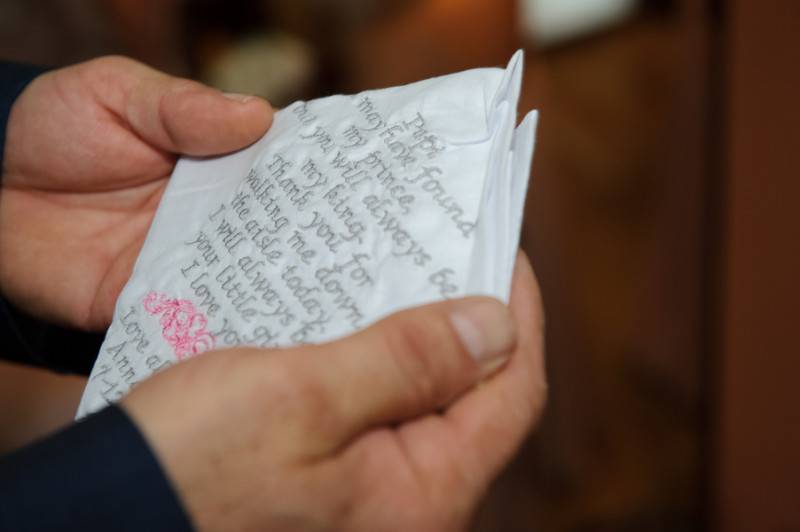 Papi
may have found
my prince
but you will always be
my king.
Thank you for
walking me down
the aisle today.
I will always b
your little g
I love yo
Love al
Ann
7-1